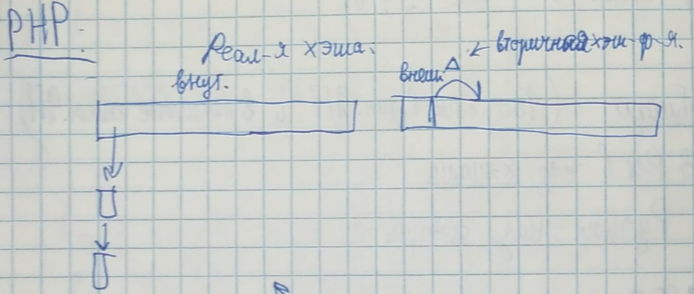 PHP.
Реал-я хэша:
внут.
внеш. Δ ← вторичная хэш-ф-я.